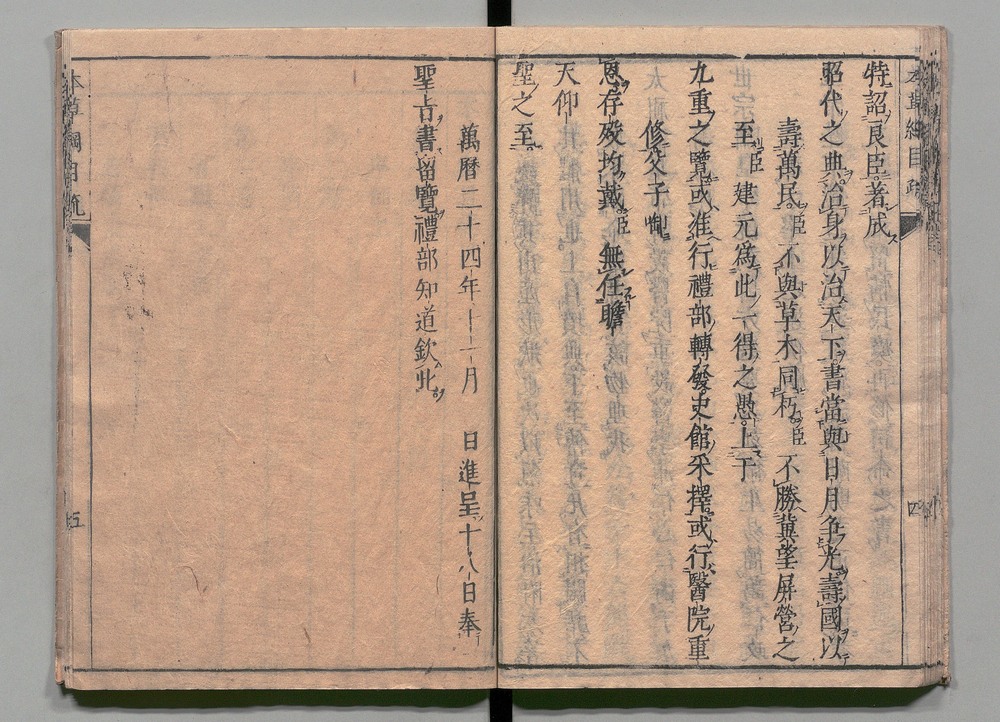 本草綱目疏
特詔良臣著成
昭代之典治身以治天下書當與日月争光壽國以
壽萬民臣不與草木同朽臣不勝冀望屏營之
至臣建元為此一得之愚上于
九重之覽或准行禮部轉發史館采擇或行醫院重
修父子啣
恩存殁均戴臣無任瞻
天仰
聖之至
四
萬曆二十四年十一月 日進呈十八日奉
聖旨書留覽禮部知道欽此
本草綱目疏
五